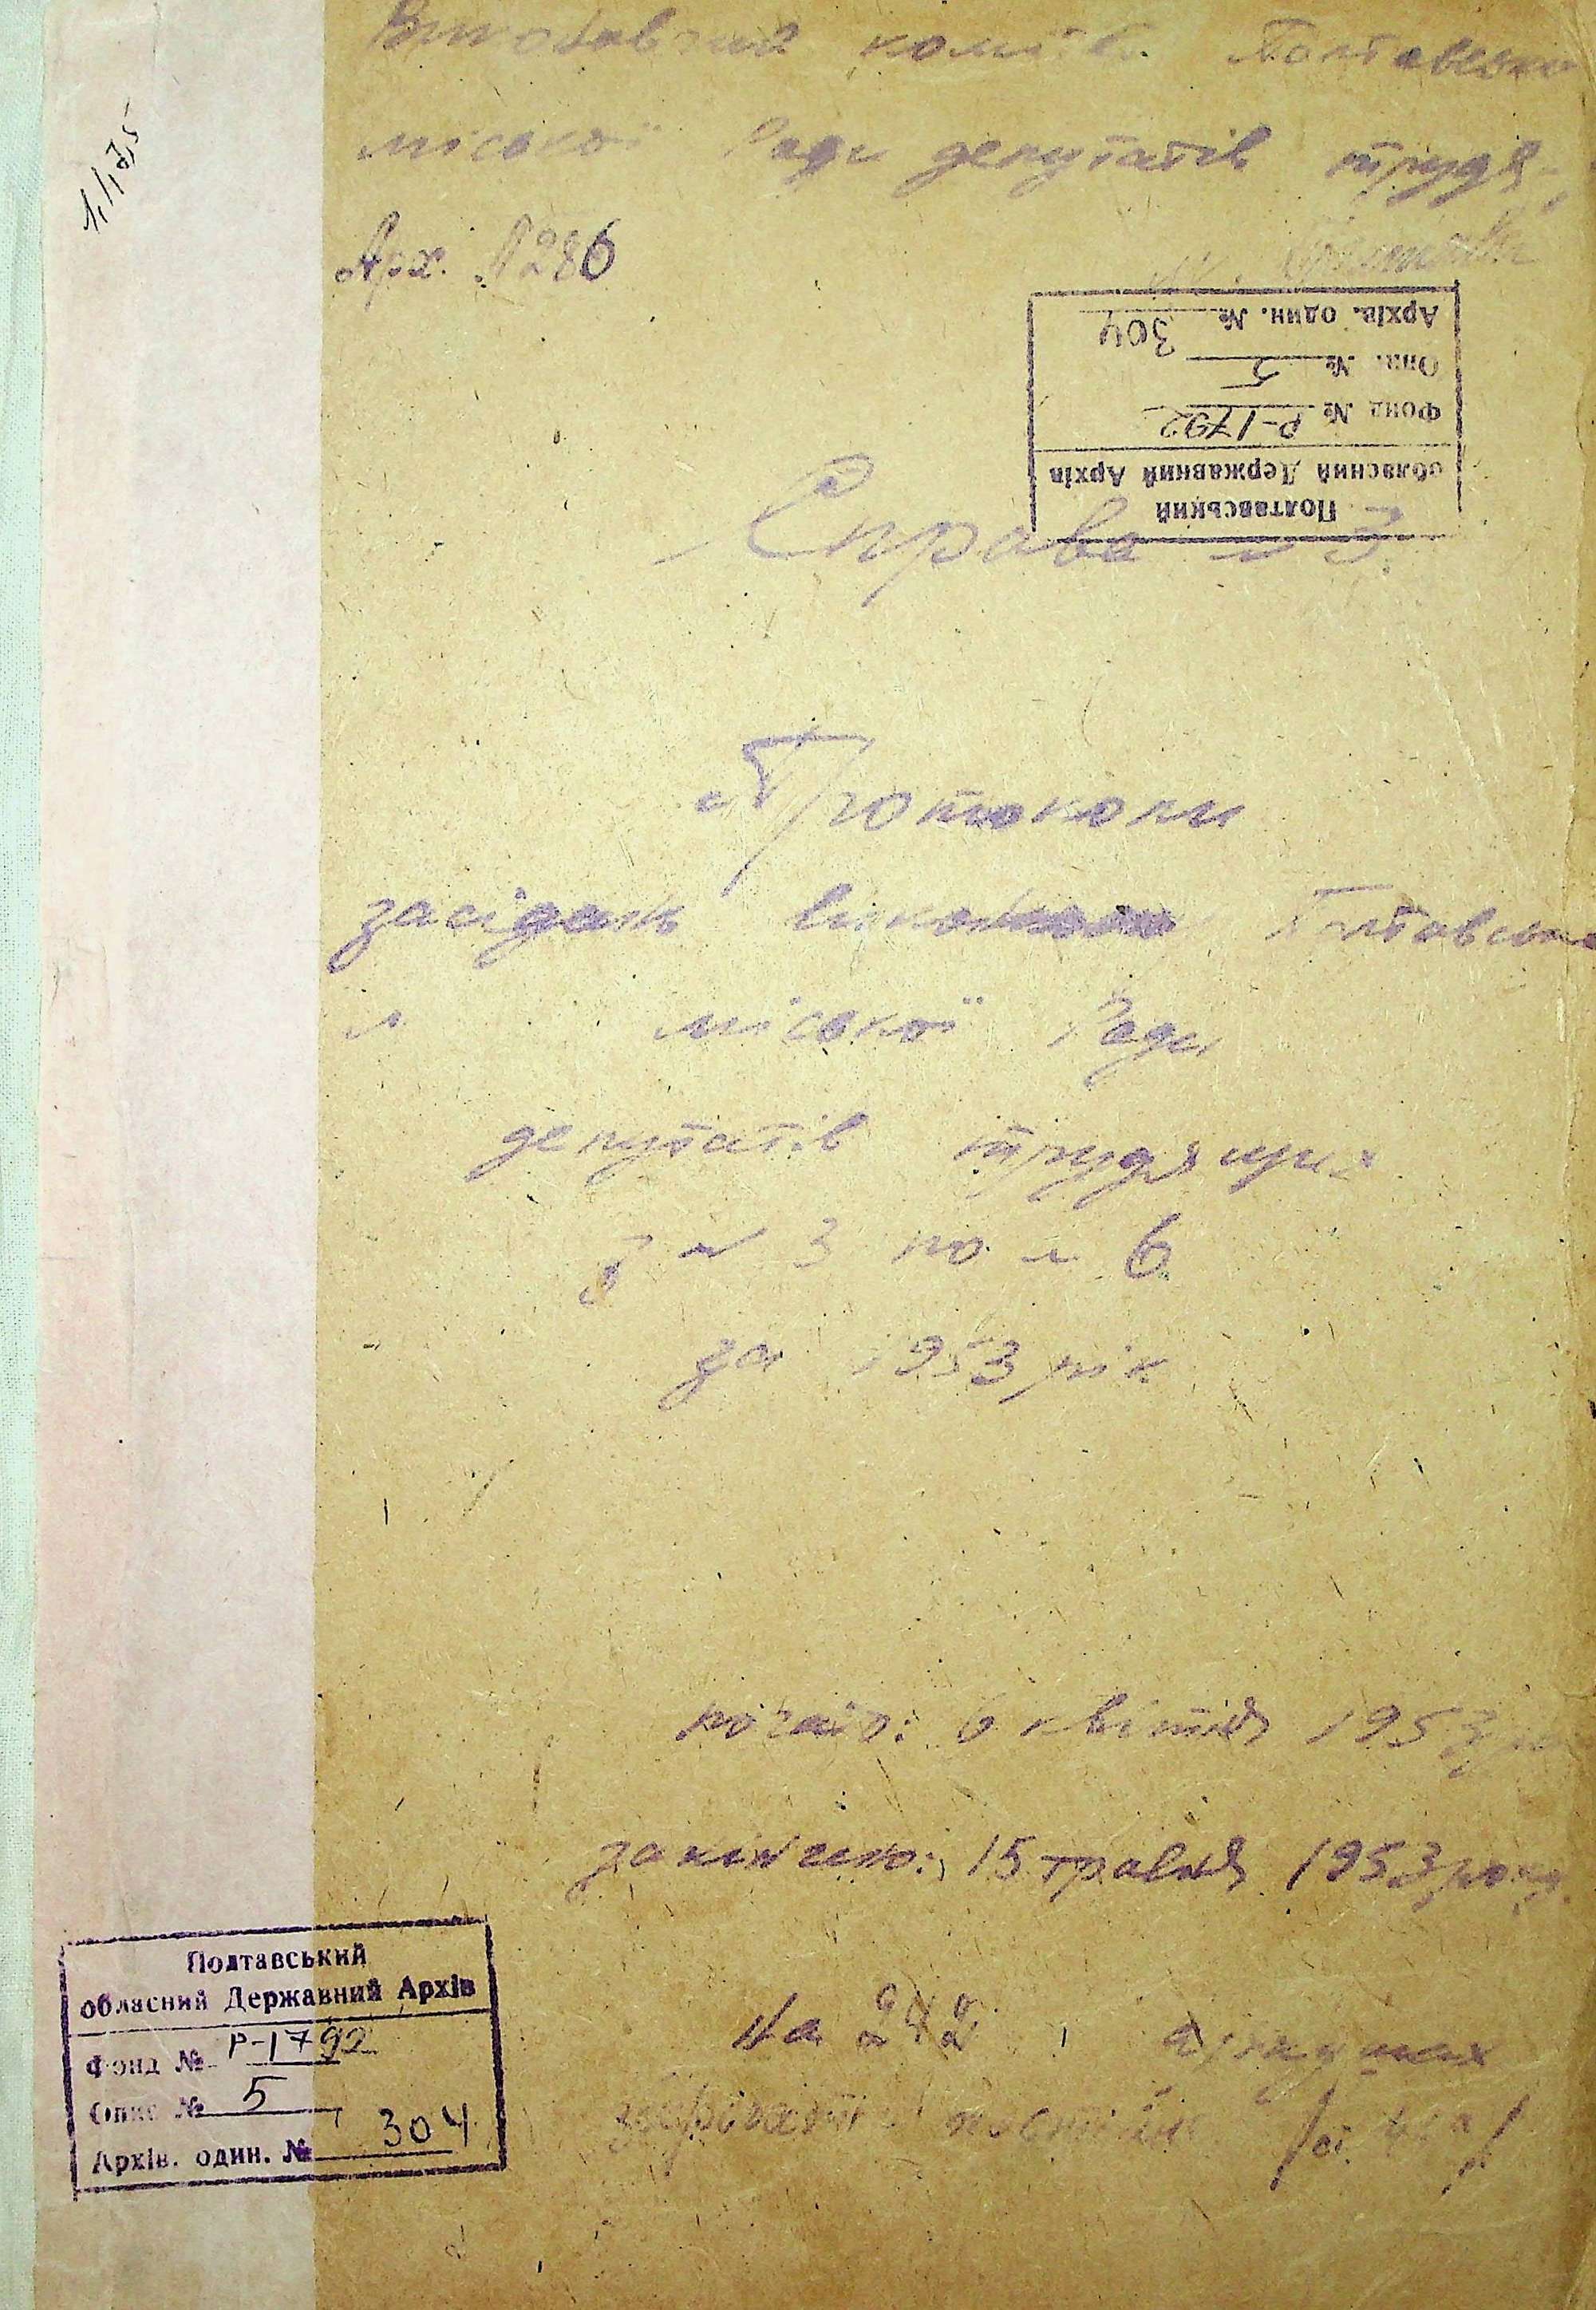 Виконавчий коміт. Полтавсько
міської Ради депутатів трудя-
Арх. №286
Архів. один. № 304
Опис. № 5
Фонд № Р-1792
обласний Державний Архів
Полтавський
Справа № 3
Протоколи
засідань Полтавсько
міської Ради
депутатів трудящих
з № 3 по № 6
за 1953 рік
почато: 6 квітня 1953 р
закінчено: 15 травня 1953 року
На 242 аркушах
зберігати постійно
Полтавський
обласний Державний Архів
Фонд № Р-1792
Опис № 5
Архів. один. № 304